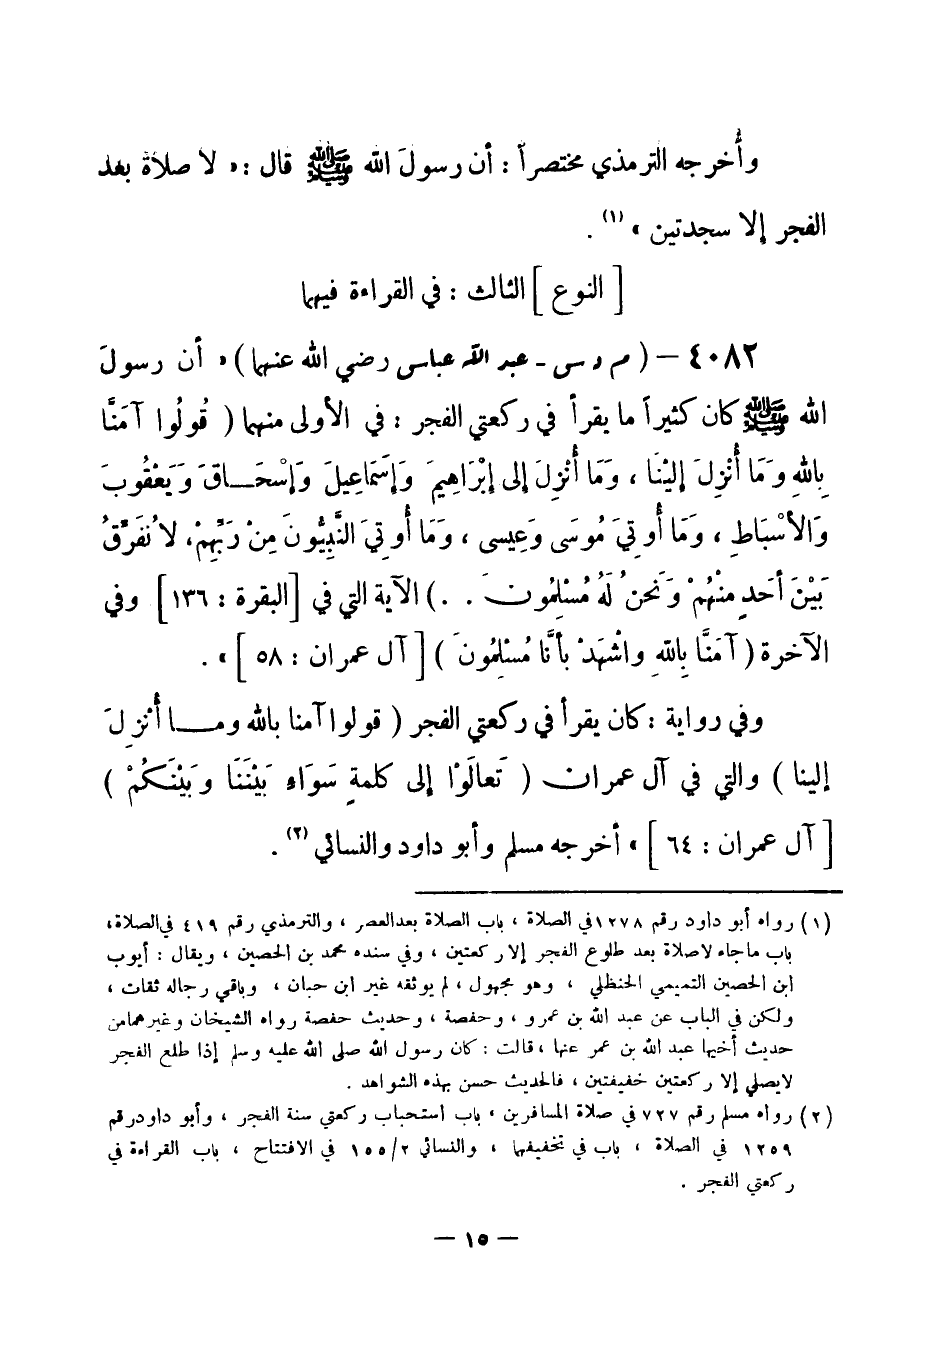 وأُخرجه الترمذي مختصراً : أن رسولَ الله ﷺ قال : « لا صلاةَ بعْدَ
الفجر إلا سجدتين » (١) .
[ النوع ] الثالث : في القراءة فيهما
٤٠٨٢ – ( م د س - عبد الله عباس رضي الله عنهما ) « أن رسولَ
الله ﷺ كان كثيراً ما يقرأ في ركعتي الفجر : في الأولى منهما ( قُولُوا آمَنَّا
بِاللهِ وَمَا أُنْزِلَ إِلَيْنَا ، وَمَا أُنْزِلَ إلى إِبْرَاهِيمَ وَإِسْمَاعِيلَ وَإِسْحَـاقَ وَيَعْقُوبَ
وَالأَسْبَاطِ ، وَمَا أُوتِيَ مُوسَى وَعِيسى ، وَمَا أُوتِيَ النَّبِيُّونَ مِنْ رَبِّهِمْ، لا نُفَرِّقُ
بَيْنَ أَحَدٍ مِنْهُمْ وَنَحنُ لَهُ مُسْلِمُونَ . . ) الآية التي في [البقرة : ١٣٦] وفي
الآخرة ( آمَنَّا بِاللهِ واشْهَدْ بأنَّا مُسْلِمُونَ ) [ آل عمران : ٥٨ ] » .
وفي رواية : كان يقرأ في ركعتي الفجر ( قولوا آمنا بالله ومـا أُنْزِلَ
إلينا ) والتي في آل عمران ( تَعالَوْا إلى كلمةٍ سَوَاءٍ بَيْنَنَا وَبيْنَكُمْ )
[ آل عمران : ٦٤ ] » أخرجه مسلم وأبو داود والنسائي (٢) .
(١) رواه أبو داود رقم ١٢٧٨ في الصلاة ، باب الصلاة بعد العصر ، والترمذي رقم ٤١٩ في الصلاة،
باب ماجاء لاصلاة بعد طلوع الفجر إلا ركعتين ، وفي سنده محمد بن الحصين ، ويقال : أيوب
ابن الحصين التميمي الحنظلي ، وهو مجهول ، لم يوثقه غير ابن حبان ، وباقي رجاله ثقات ،
ولكن في الباب عن عبد الله بن عمرو ، وحفصة ، وحديث حفصة رواه الشيخان وغيرهمامن
حديث أخيها عبد الله بن عمر عنها ، قالت : كان رسول الله صلى الله عليه وسلم إذا طلع الفجر
لايصلي إلا ركعتين خفيفتين ، فالحديث حسن بهذه الشواهد .
(٢) رواه مسلم رقم ٧٢٧ في صلاة المسافرين ، باب استحباب ركعتي سنة الفجر ، وأبو داود رقم
١٢٥٩ في الصلاة ، باب في تخفيفهما ، والنسائي ٢/١٥٥ في الافتتاح ، باب القراءة في
ركعتي الفجر .
– ١٥ –